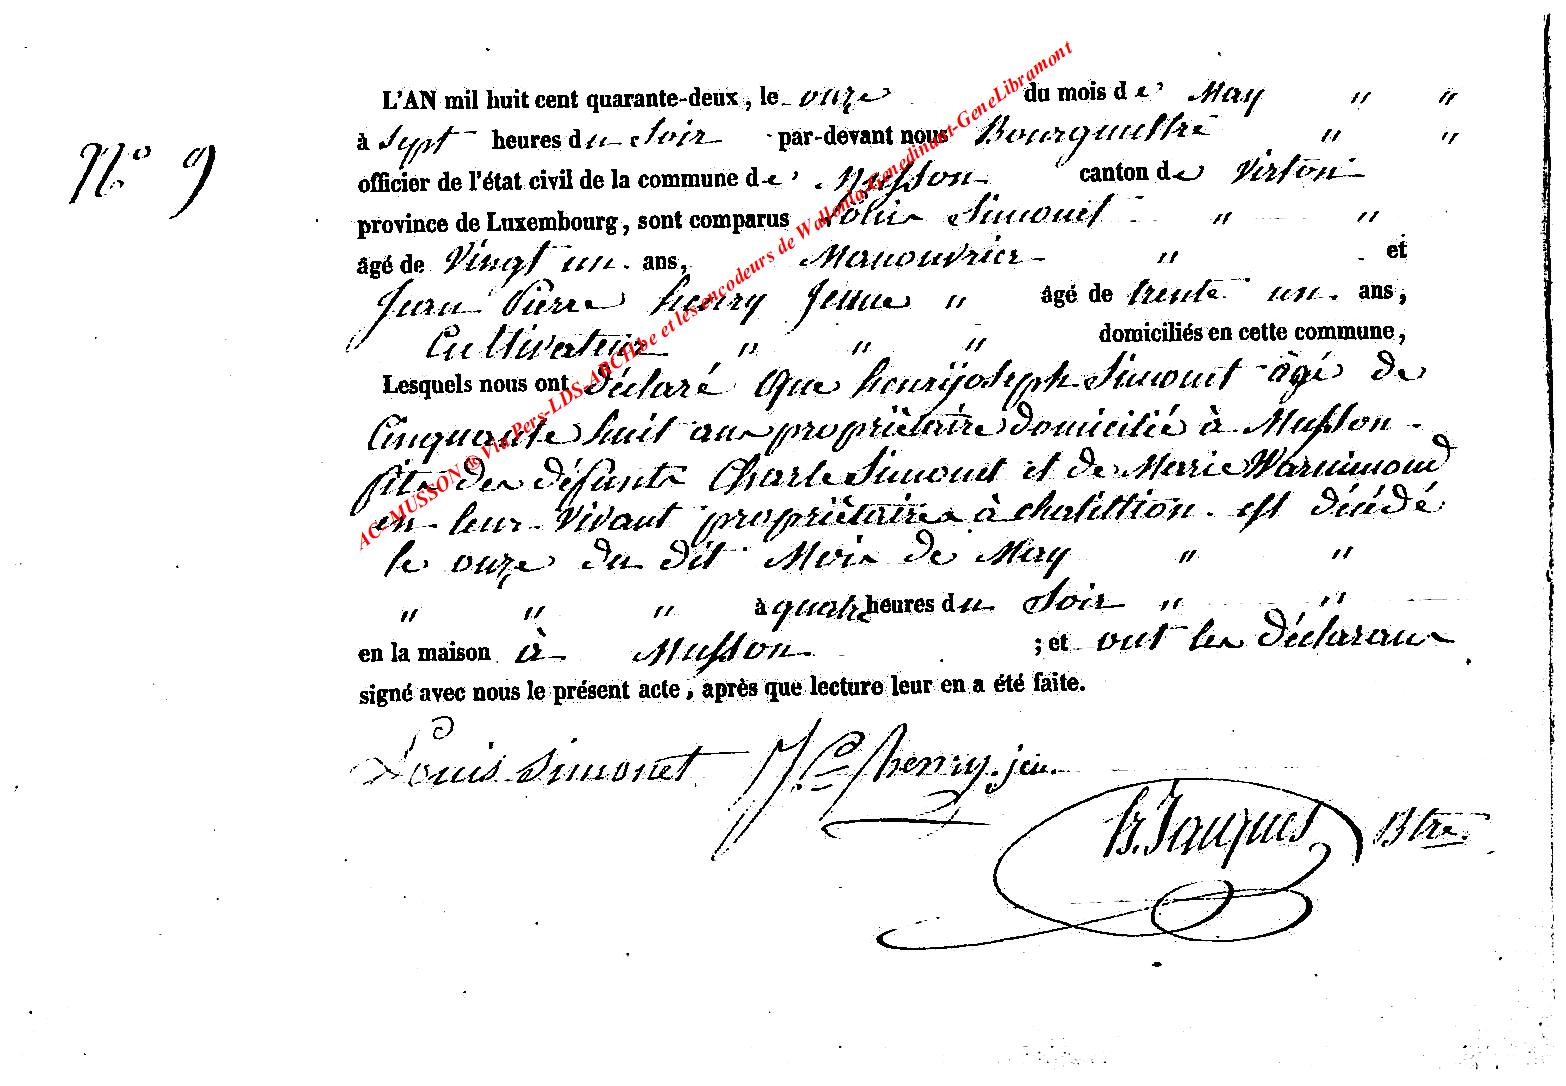 L'AN mil huit cent quarante-deux, le onze du mois de May " "
N° 9
à Sept heures du Soir par-devant nous Bourguestre " "
officier de l'état civil de la commune de Musson canton de Virton
province de Luxembourg, sont comparus Louis Simonet " "
âgé de Vingt un ans, Manouvrier " et
Jean Pierre henry Jeune " âgé de trente un ans,
Cultivateur " " " domiciliés en cette commune,
Lesquels nous ont déclaré que henry joseph Simonet âgé de
Cinquante huit ans propriétaire domicilié à Musson
fils des défunts Charle Simonet et de Marie Warnimond
en leur vivant propriétaires à chatillion est décédé
le onze du dit Mois de May " "
" " " à quatre heures du Soir " "
en la maison à Musson ; et ont les déclarans
signé avec nous le présent acte, après que lecture leur en a été faite.
Louis Simonet J. P. henry. jeu.
Jacques Btre.
ACC MUSSON © Via Pers-LDS-ARCH.be et les encodeurs de Wallonia-Genedinant-GeneLibramont